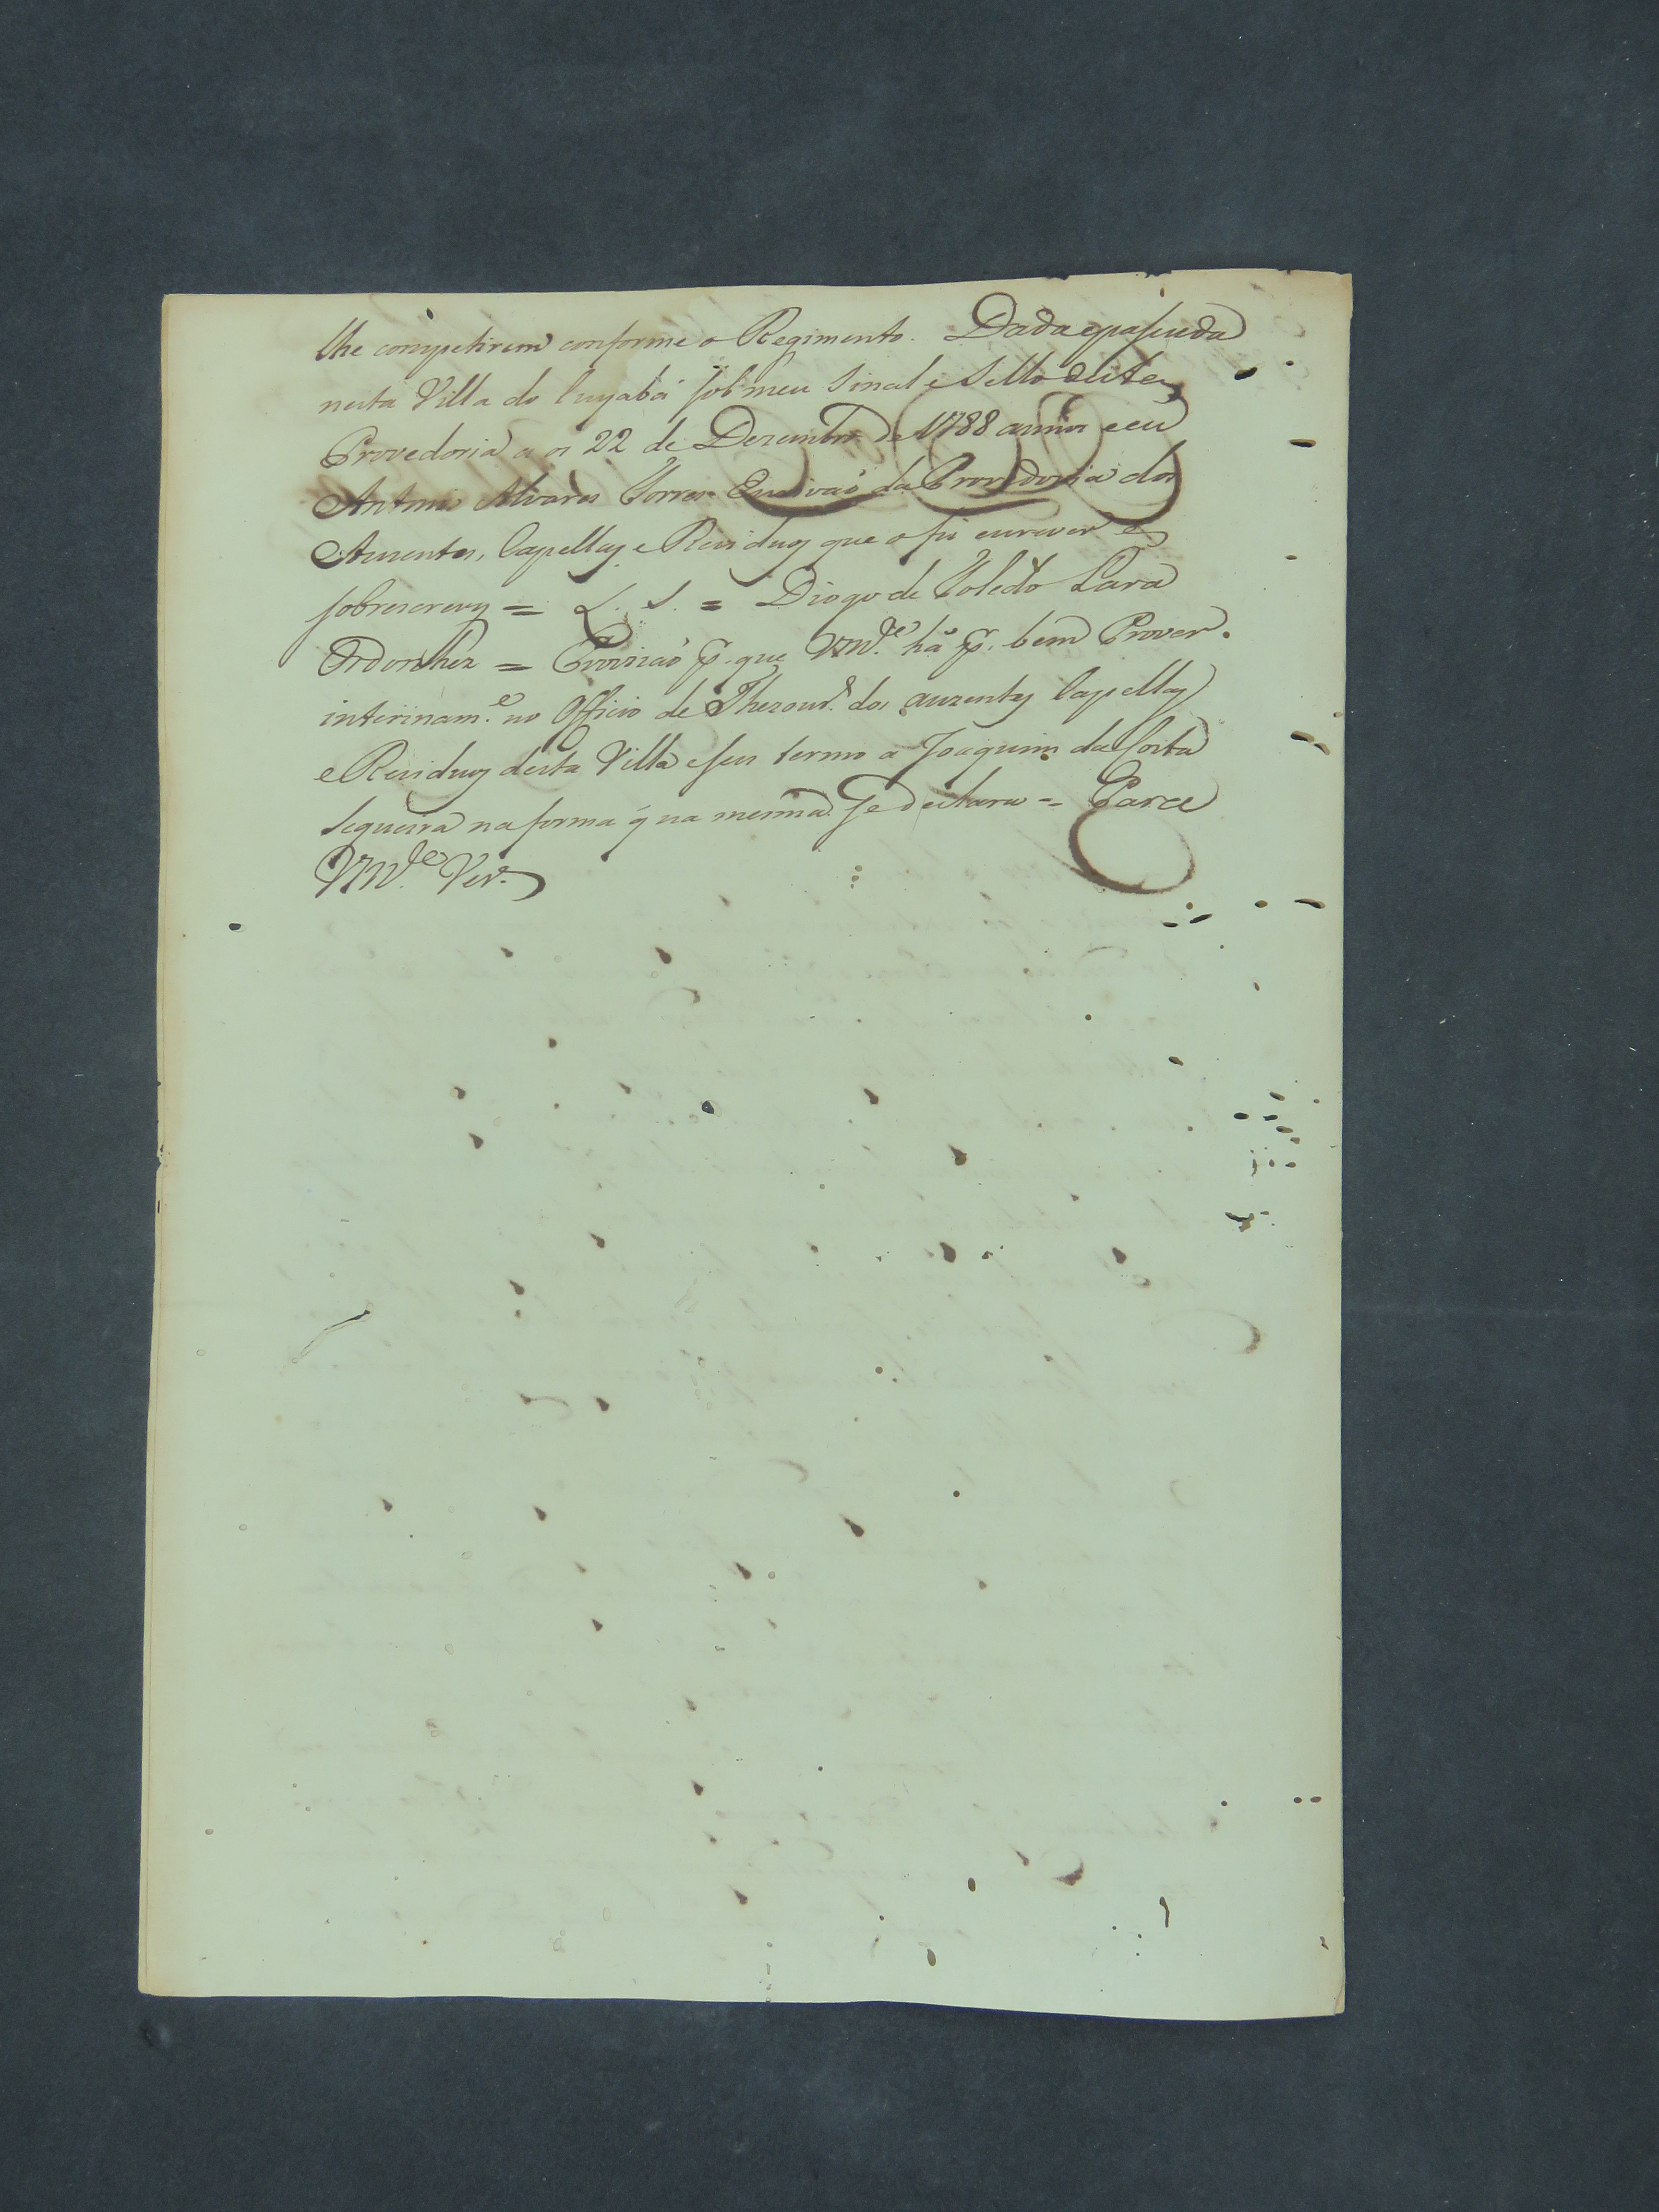 lhe competirem conforme o Regimento. Dada epassada
nesta Villa do Cuyabá sob meu Sinal e Sello desta
Provedoria a os 22 de Dezembro de 1788 annos e eu
Antonio Alvares Torres Escrivaõ da Provedoria dos
Auzentes, Capellas, e Reziduos que o fis escrever e
sobrescrevy = L. S. = Diogo de Toledo Lara
Ordonhez = Provizaõ p. que VM.ce há p. bem Prover.
interinam.e no Officio de Thezour.o dos auzentes Capellas
e Reziduos desta Villa e seu termo a Joaquim da Costa
Sequeira na forma q̃ na mesma se declara = Para
VM.ce Ver.